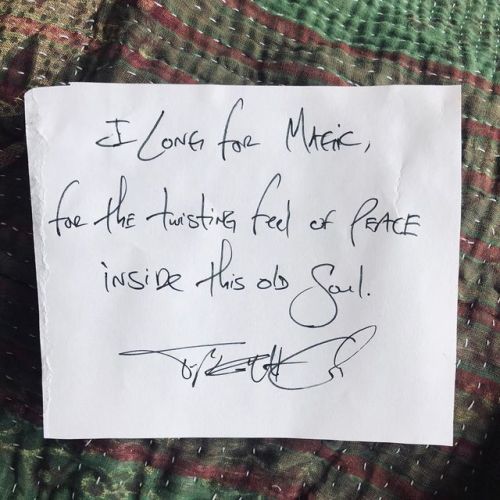 I Long for Magic,
for the twisting feel of Peace
inside this old Soul.